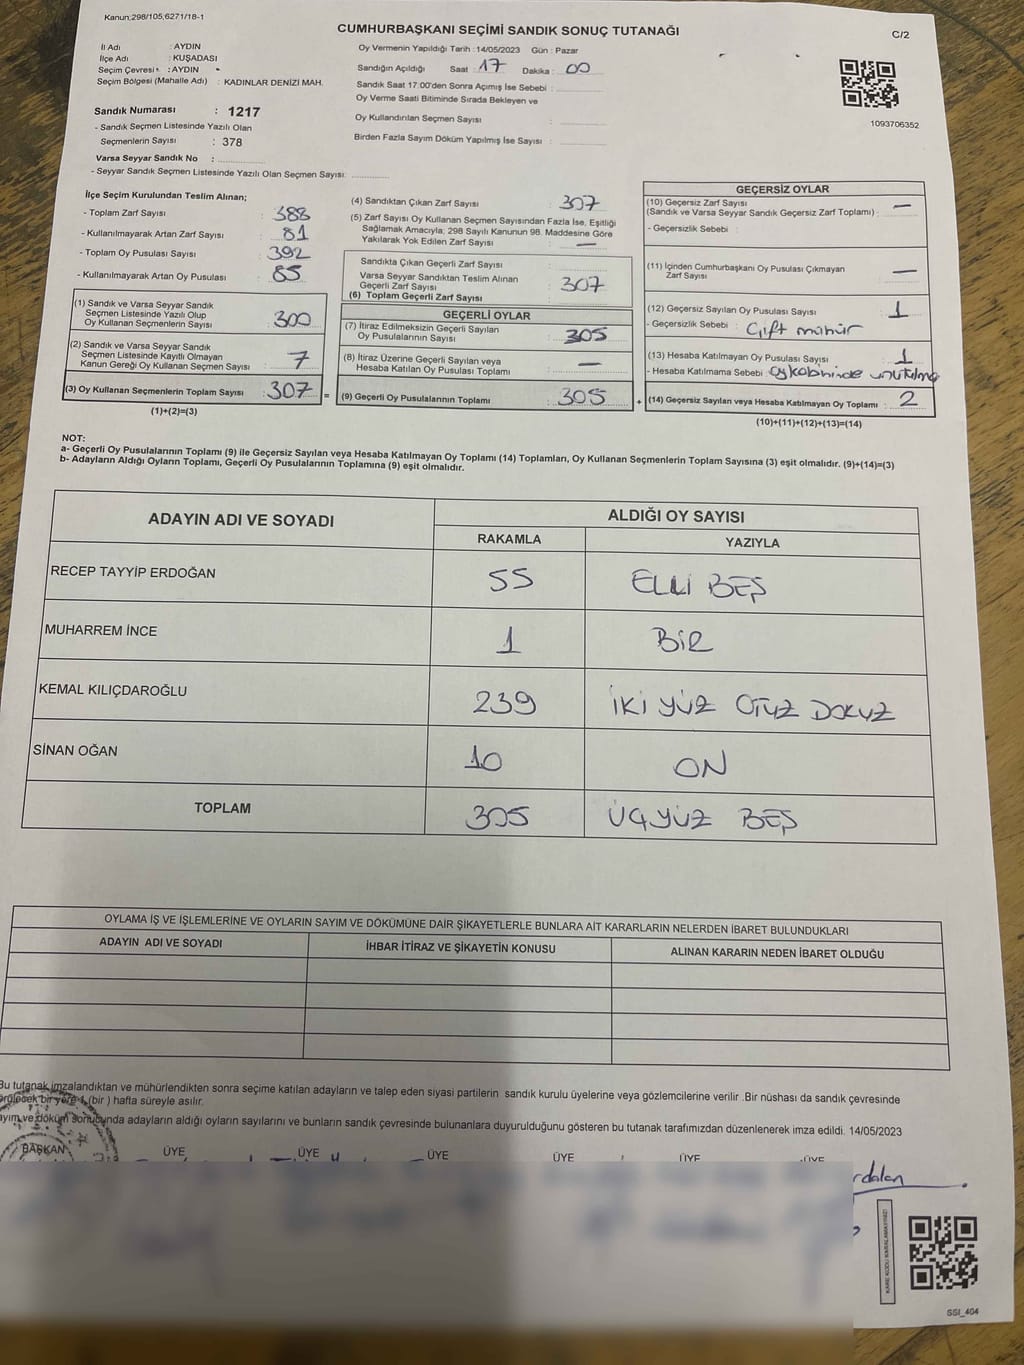 Kanun;298/105;6271/18-1
CUMHURBAŞKANI SEÇİMİ SANDIK SONUÇ TUTANAĞI
C/2
İl Adı : AYDIN
İlçe Adı : KUŞADASI
Seçim Çevresi : AYDIN
Seçim Bölgesi (Mahalle Adı) : KADINLAR DENİZİ MAH.
Sandık Numarası : 1217
- Sandık Seçmen Listesinde Yazılı Olan
Seçmenlerin Sayısı : 378
Varsa Seyyar Sandık No :
- Seyyar Sandık Seçmen Listesinde Yazılı Olan Seçmen Sayısı:
Oy Vermenin Yapıldığı Tarih : 14/05/2023 Gün : Pazar
Sandığın Açıldığı Saat : 17 Dakika : 00
Sandık Saat 17:00'den Sonra Açımış İse Sebebi :
Oy Verme Saati Bitiminde Sırada Bekleyen ve
Oy Kullandırılan Seçmen Sayısı :
Birden Fazla Sayım Döküm Yapılmış İse Sayısı :
1093706352
İlçe Seçim Kurulundan Teslim Alınan;
- Toplam Zarf Sayısı : 388
- Kullanılmayarak Artan Zarf Sayısı : 81
- Toplam Oy Pusulası Sayısı : 392
- Kullanılmayarak Artan Oy Pusulası : 85
(1) Sandık ve Varsa Seyyar Sandık
Seçmen Listesinde Yazılı Olup
Oy Kullanan Seçmenlerin Sayısı : 300
(2) Sandık ve Varsa Seyyar Sandık
Seçmen Listesinde Kayıtlı Olmayan
Kanun Gereği Oy Kullanan Seçmen Sayısı : 7
(3) Oy Kullanan Seçmenlerin Toplam Sayısı : 307 =
(1)+(2)=(3)
(4) Sandıktan Çıkan Zarf Sayısı : 307
(5) Zarf Sayısı Oy Kullanan Seçmen Sayısından Fazla İse, Eşitliği
Sağlamak Amacıyla; 298 Sayılı Kanunun 98. Maddesine Göre
Yakılarak Yok Edilen Zarf Sayısı : —
Sandıkta Çıkan Geçerli Zarf Sayısı :
Varsa Seyyar Sandıktan Teslim Alınan
Geçerli Zarf Sayısı
(6) Toplam Geçerli Zarf Sayısı : 307
GEÇERLİ OYLAR
(7) İtiraz Edilmeksizin Geçerli Sayılan
Oy Pusulalarının Sayısı : 305
(8) İtiraz Üzerine Geçerli Sayılan veya
Hesaba Katılan Oy Pusulası Toplamı : —
(9) Geçerli Oy Pusulalarının Toplamı : 305 +
GEÇERSİZ OYLAR
(10) Geçersiz Zarf Sayısı : —
(Sandık ve Varsa Seyyar Sandık Geçersiz Zarf Toplamı) :
- Geçersizlik Sebebi :
(11) İçinden Cumhurbaşkanı Oy Pusulası Çıkmayan
Zarf Sayısı : —
(12) Geçersiz Sayılan Oy Pusulası Sayısı : 1
- Geçersizlik Sebebi : Çift mühür
(13) Hesaba Katılmayan Oy Pusulası Sayısı : 1
- Hesaba Katılmama Sebebi : oy kabininde unutulma
(14) Geçersiz Sayılan veya Hesaba Katılmayan Oy Toplamı : 2
(10)+(11)+(12)+(13)=(14)
NOT:
a- Geçerli Oy Pusulalarının Toplamı (9) ile Geçersiz Sayılan veya Hesaba Katılmayan Oy Toplamı (14) Toplamları, Oy Kullanan Seçmenlerin Toplam Sayısına (3) eşit olmalıdır. (9)+(14)=(3)
b- Adayların Aldığı Oyların Toplamı, Geçerli Oy Pusulalarının Toplamına (9) eşit olmalıdır.
ADAYIN ADI VE SOYADI
ALDIĞI OY SAYISI
RAKAMLA YAZIYLA
RECEP TAYYİP ERDOĞAN 55 ELLİ BEŞ
MUHARREM İNCE 1 BİR
KEMAL KILIÇDAROĞLU 239 İKİ YÜZ OTUZ DOKUZ
SİNAN OĞAN 10 ON
TOPLAM 305 ÜÇYÜZ BEŞ
OYLAMA İŞ VE İŞLEMLERİNE VE OYLARIN SAYIM VE DÖKÜMÜNE DAİR ŞİKAYETLERLE BUNLARA AİT KARARLARIN NELERDEN İBARET BULUNDUKLARI
ADAYIN ADI VE SOYADI İHBAR İTİRAZ VE ŞİKAYETİN KONUSU ALINAN KARARIN NEDEN İBARET OLDUĞU
Bu tutanak imzalandıktan ve mühürlendikten sonra seçime katılan adayların ve talep eden siyasi partilerin sandık kurulu üyelerine veya gözlemcilerine verilir .Bir nüshası da sandık çevresinde
bir yere 1 (bir ) hafta süreyle asılır.
ve döküm sonucunda adayların aldığı oyların sayılarını ve bunların sandık çevresinde bulunanlara duyurulduğunu gösteren bu tutanak tarafımızdan düzenlenerek imza edildi. 14/05/2023
BAŞKAN ÜYE ÜYE ÜYE ÜYE ÜYE ÜYE
rdalan
SSI_404